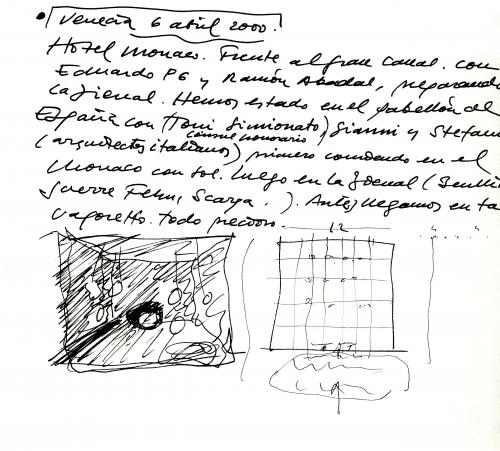 Venecia 6 abril 2000.
Hotel Monaco. Frente al gran Canal. con
Eduardo PG y Ramón Abadal, preparando
la Bienal. Hemos estado en el pabellón de
España con (Toni Simionato), Gianni y Stefano
consul honorario
(arquitectos italianos) primero comiendo en el
Monaco con sol. luego en la Bienal
Fehn, Scarpa. ). Antes llegamos en ta
vaporetto. todo precioso.
12